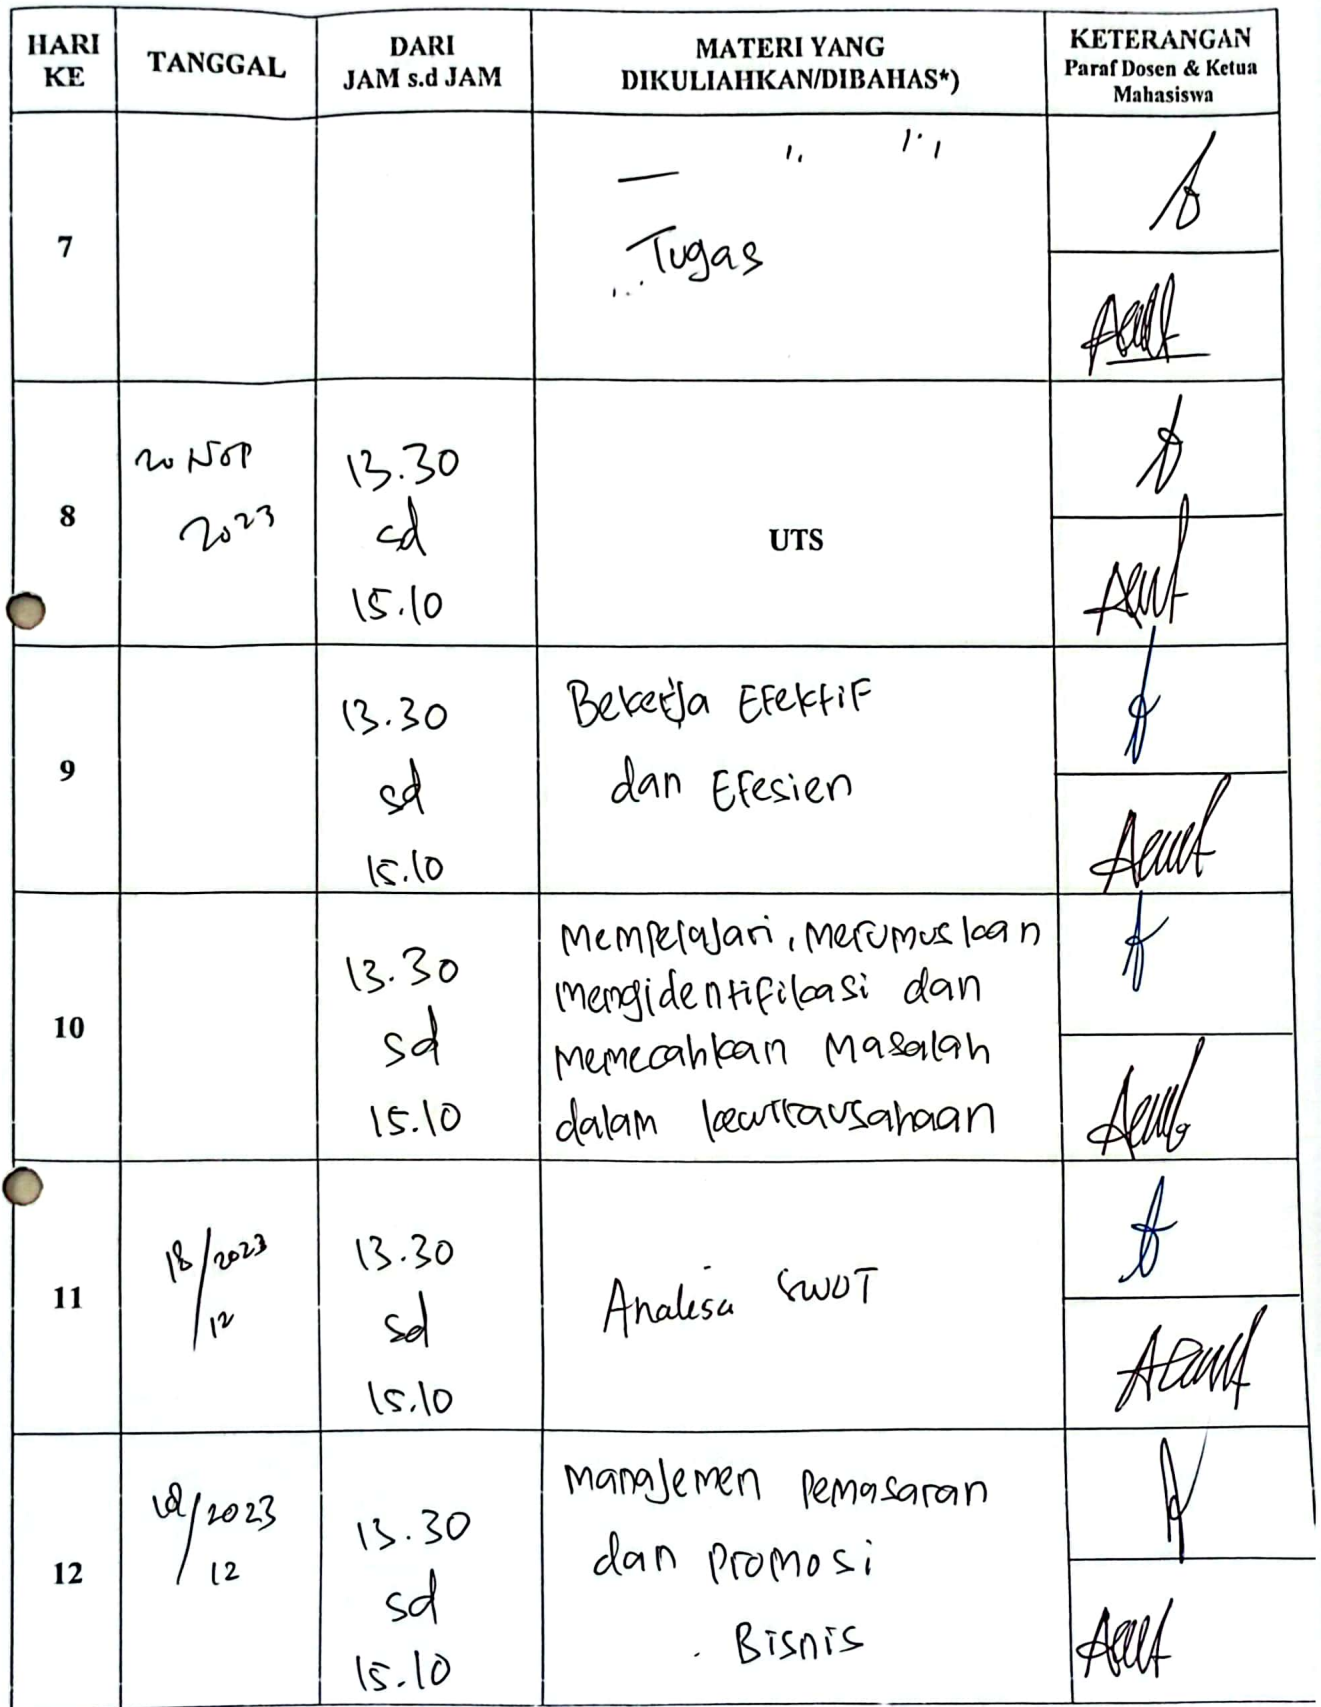 HARI KE
TANGGAL
DARI
JAM s.d JAM
MATERI YANG
DIKULIAHKAN/DIBAHAS*)
KETERANGAN
Paraf Dosen & Ketua
Mahasiswa
7
Tugas
8
20 Nop
2023
13.30
sd
15.10
UTS
9
13.30
sd
15.10
Bekerja Efektif
dan Efesien
10
13.30
sd
15.10
Mempelajari, Merumuskan
Mengidentifikasi dan
Memecahkan Masalah
dalam kewirausahaan
11
18/2023
12
13.30
sd
15.10
Analisa SWOT
12
/2023
12
13.30
sd
15.10
Manajemen Pemasaran
dan Promosi
Bisnis